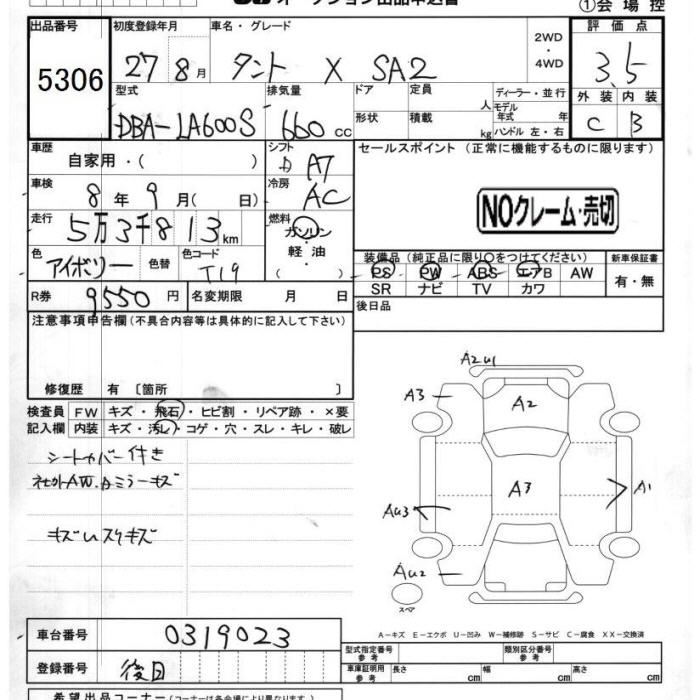 オークション出品申込書
①会場控
出品番号 初度登録年月 車名・グレード 2WD ・ 4WD 評価点
5306 27 8月 タント X SA2 3.5
型式 排気量 ドア 定員 人 ディーラー・並行 外装 内装
DBA-LA600S 660cc 形状 積載 kg モデル年式 年 ハンドル 左・右 C B
車歴 自家用・( ) シフト A7 セールスポイント (正常に機能するものに限ります)
車検 8年 9月( 日) 冷房 AC
NOクレーム・売切
走行 5万3千813km 燃料 ガソリン・軽油
色 アイボリー 色替 色コード T19 装備品 (純正品に限り○をつけてください) 新車保証書
PS PW ABS エアB AW 有・無
SR ナビ TV カワ
R券 9550円 名変期限 月 日 後日品
注意事項申告欄(不具合内容等は具体的に記入して下さい)
修復歴 有 〔箇所 〕
検査員 FW キズ・飛石・ヒビ割・リペア跡・×要
記入欄 内装 キズ・汚レ・コゲ・穴・スレ・キレ・破レ
シートカバー付き
社外AW.Aミラーキズ
キズUスリキズ
A2U1
A3
A2
A3
A1
AU3
AU2
スペア
A－キズ E－エクボ U－凹み W－補修跡 S－サビ C－腐食 XX－交換済
車台番号 0319023 型式指定番号 参考 類別区分番号 参考
登録番号 後日 車庫証明用 参考 長さ cm 幅 cm 高さ cm
希望出品コーナー(コーナーは各会場により異なります。)